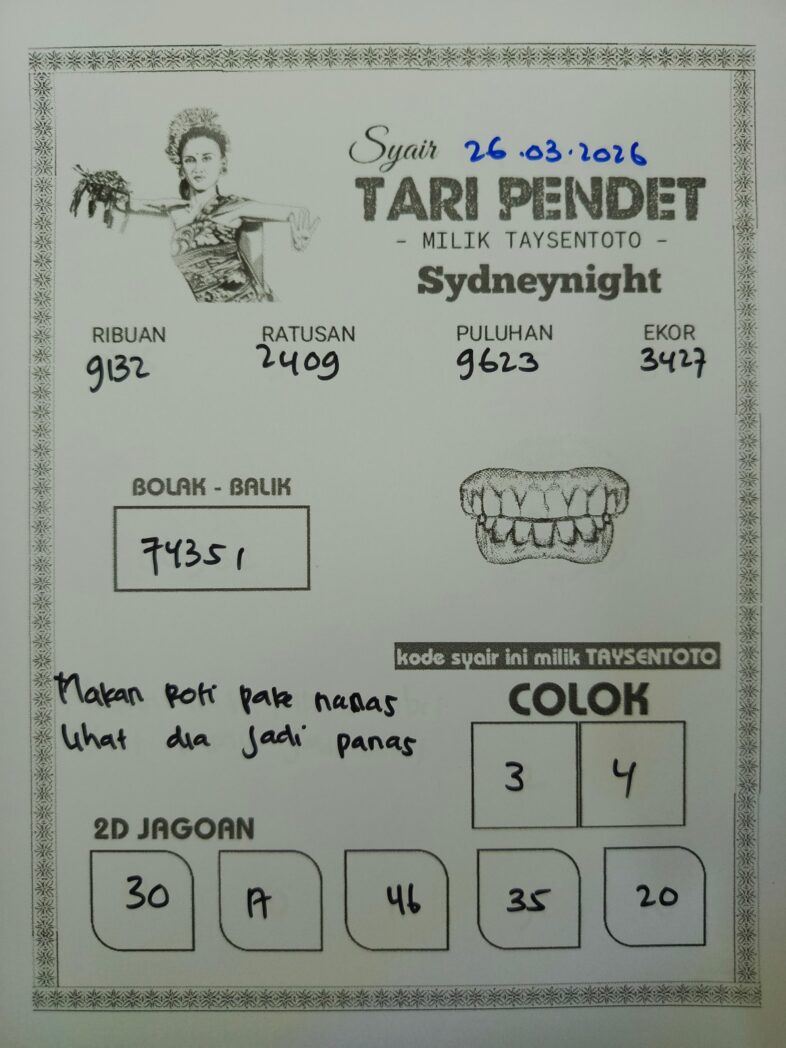 Syair 26.03.2026
TARI PENDET
- MILIK TAYSENTOTO -
Sydneynight
RIBUAN RATUSAN PULUHAN EKOR
9132 2409 9623 3427
BOLAK - BALIK
74351
kode syair ini milik TAYSENTOTO
Makan Roti pake nanas
lihat dia jadi panas
COLOK
3 4
2D JAGOAN
30 17 46 35 20